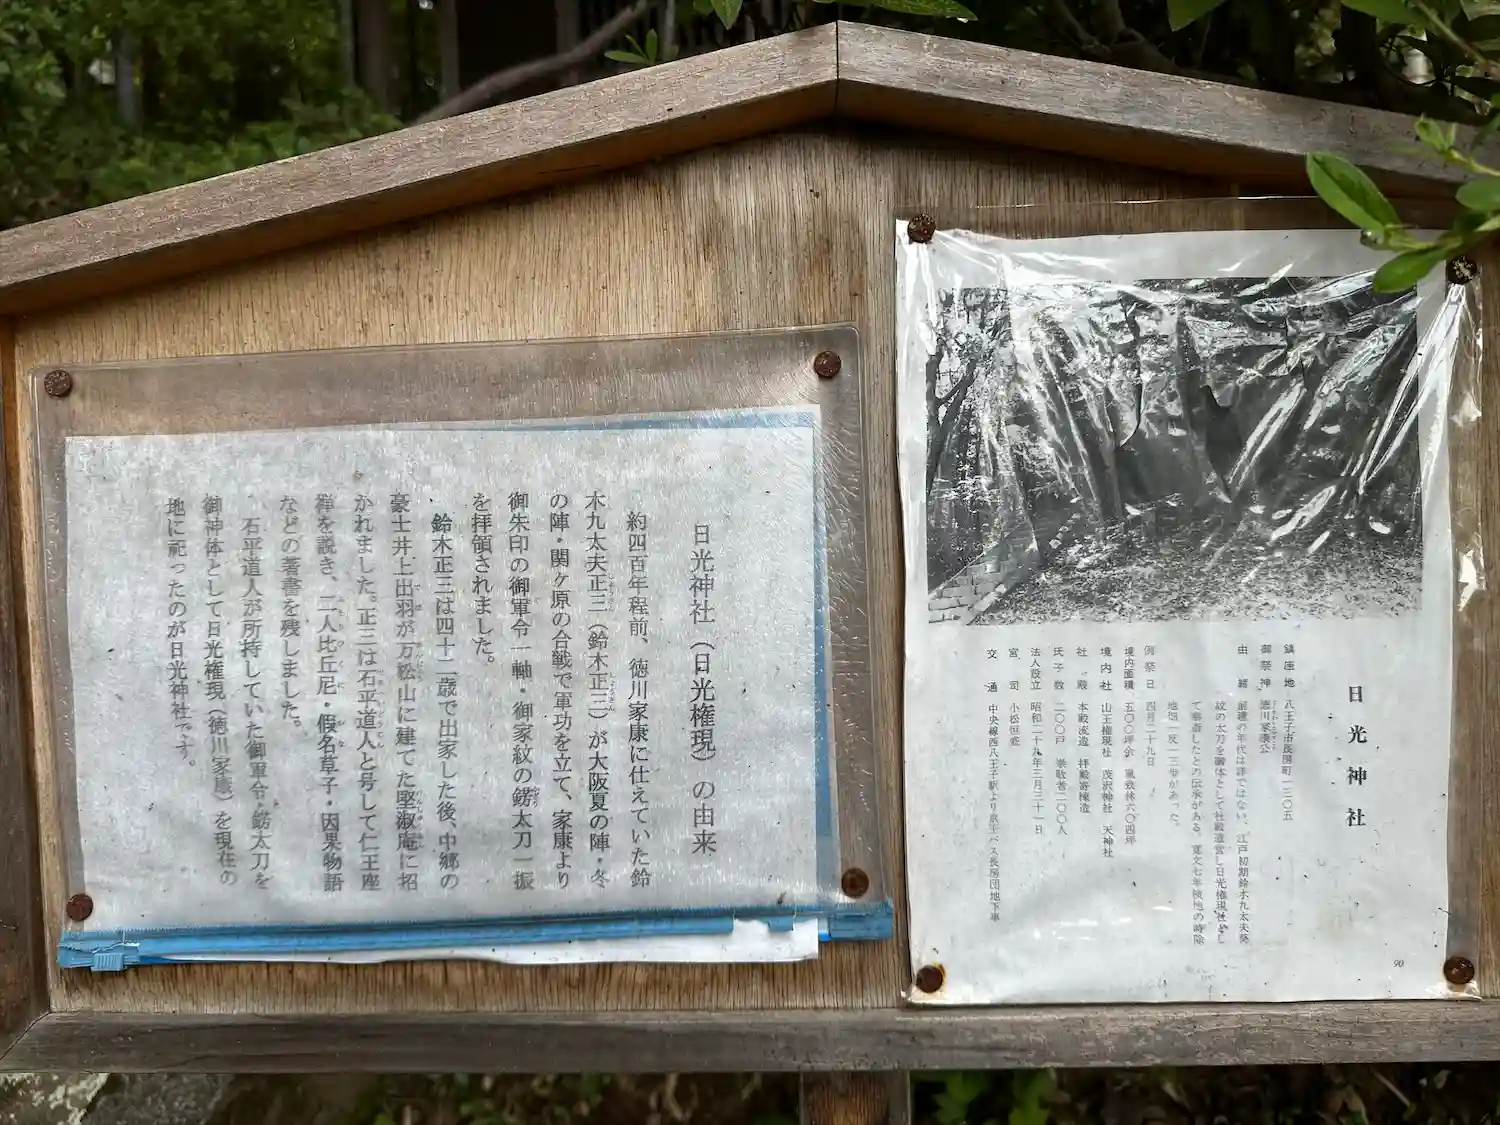 日光神社（日光権現）の由来
約四百年程前、徳川家康に仕えていた鈴
木九太夫正三（鈴木正三）が大阪夏の陣・冬
の陣・関ヶ原の合戦で軍功を立て、家康より
御朱印の御軍令一軸・御家紋の鎊太刀一振
を拝領されました。
鈴木正三は四十二歳で出家した後、中郷の
豪士井上出羽が万松山に建てた堅淑庵に招
かれました。正三は石平道人と号して仁王座
禅を説き、二人比丘尼・假名草子・因果物語
などの著書を残しました。
石平道人が所持していた御軍令・鎊太刀を
御神体として日光権現（徳川家康）を現在の
地に祀ったのが日光神社です。
日光神社
鎮座地 八王子市長房町一三〇五
御祭神 徳川家康公
由緒 創建の年代は詳ではない、江戸初期鈴木九太夫葵
紋の太刀を御体として社殿造営し日光権現社とし
て奉斎したとの伝承がある。寛文七年検地の時除
地畑一反一三歩があった。
例祭日 四月二十九日
境内面積 五〇〇坪余 風致林六〇四坪
境内社 山王権現社 茂沢神社 天神社
社殿 本殿流造 拝殿寄棟造
氏子数 二〇〇戸 崇敬者二〇〇人
法人設立 昭和二十九年三月三十一日
宮司 小松恒盛
交通 中央線西八王子駅より京王バス長房団地下車
90